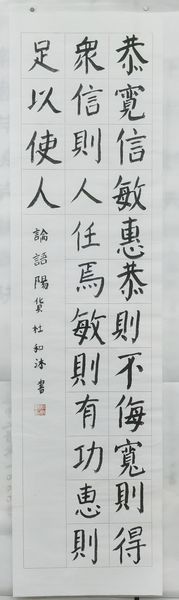 恭寬信敏惠恭則不侮寬則得
衆信則人任焉敏則有功惠則
足以使人
論語陽貨杜和泳書